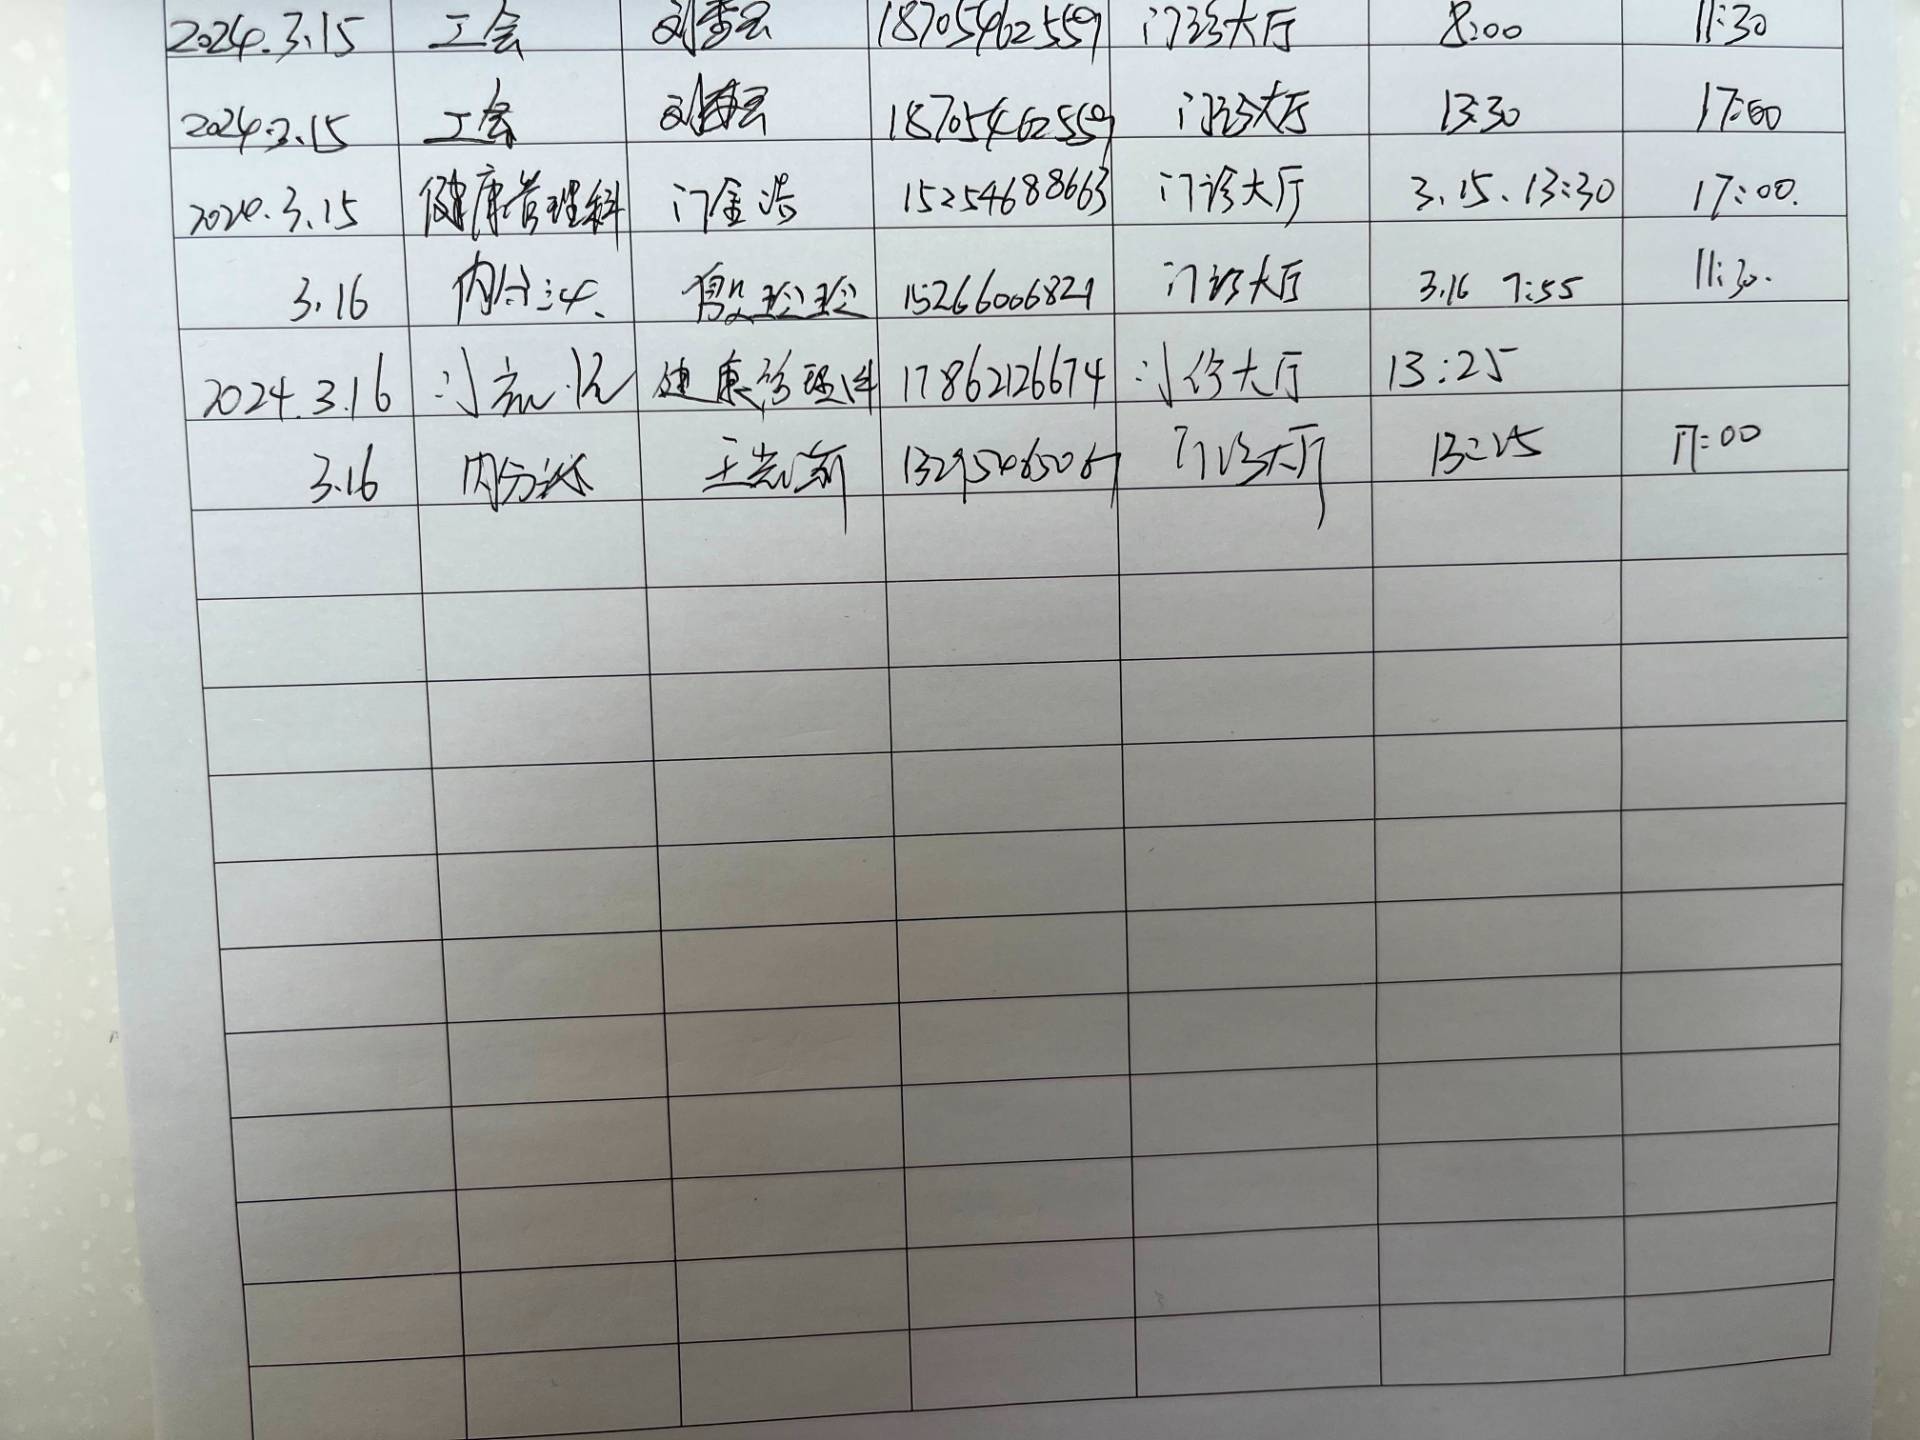 2024.3.15 工会 刘秀云 18705462559 门诊大厅 8:00 11:30
2024.3.15 工会 18705462559 门诊大厅 13:30 17:00
2024.3.15 健康管理科 门金浩 15254688663 门诊大厅 3.15. 13:30 17:00.
3.16 内分泌 殷玲玲 15266006821 门诊大厅 3.16 7:55 11:30.
2024.3.16 健康管理科 17862126674 门诊大厅 13:25
3.16 内分泌 门诊大厅 13:25 17:00